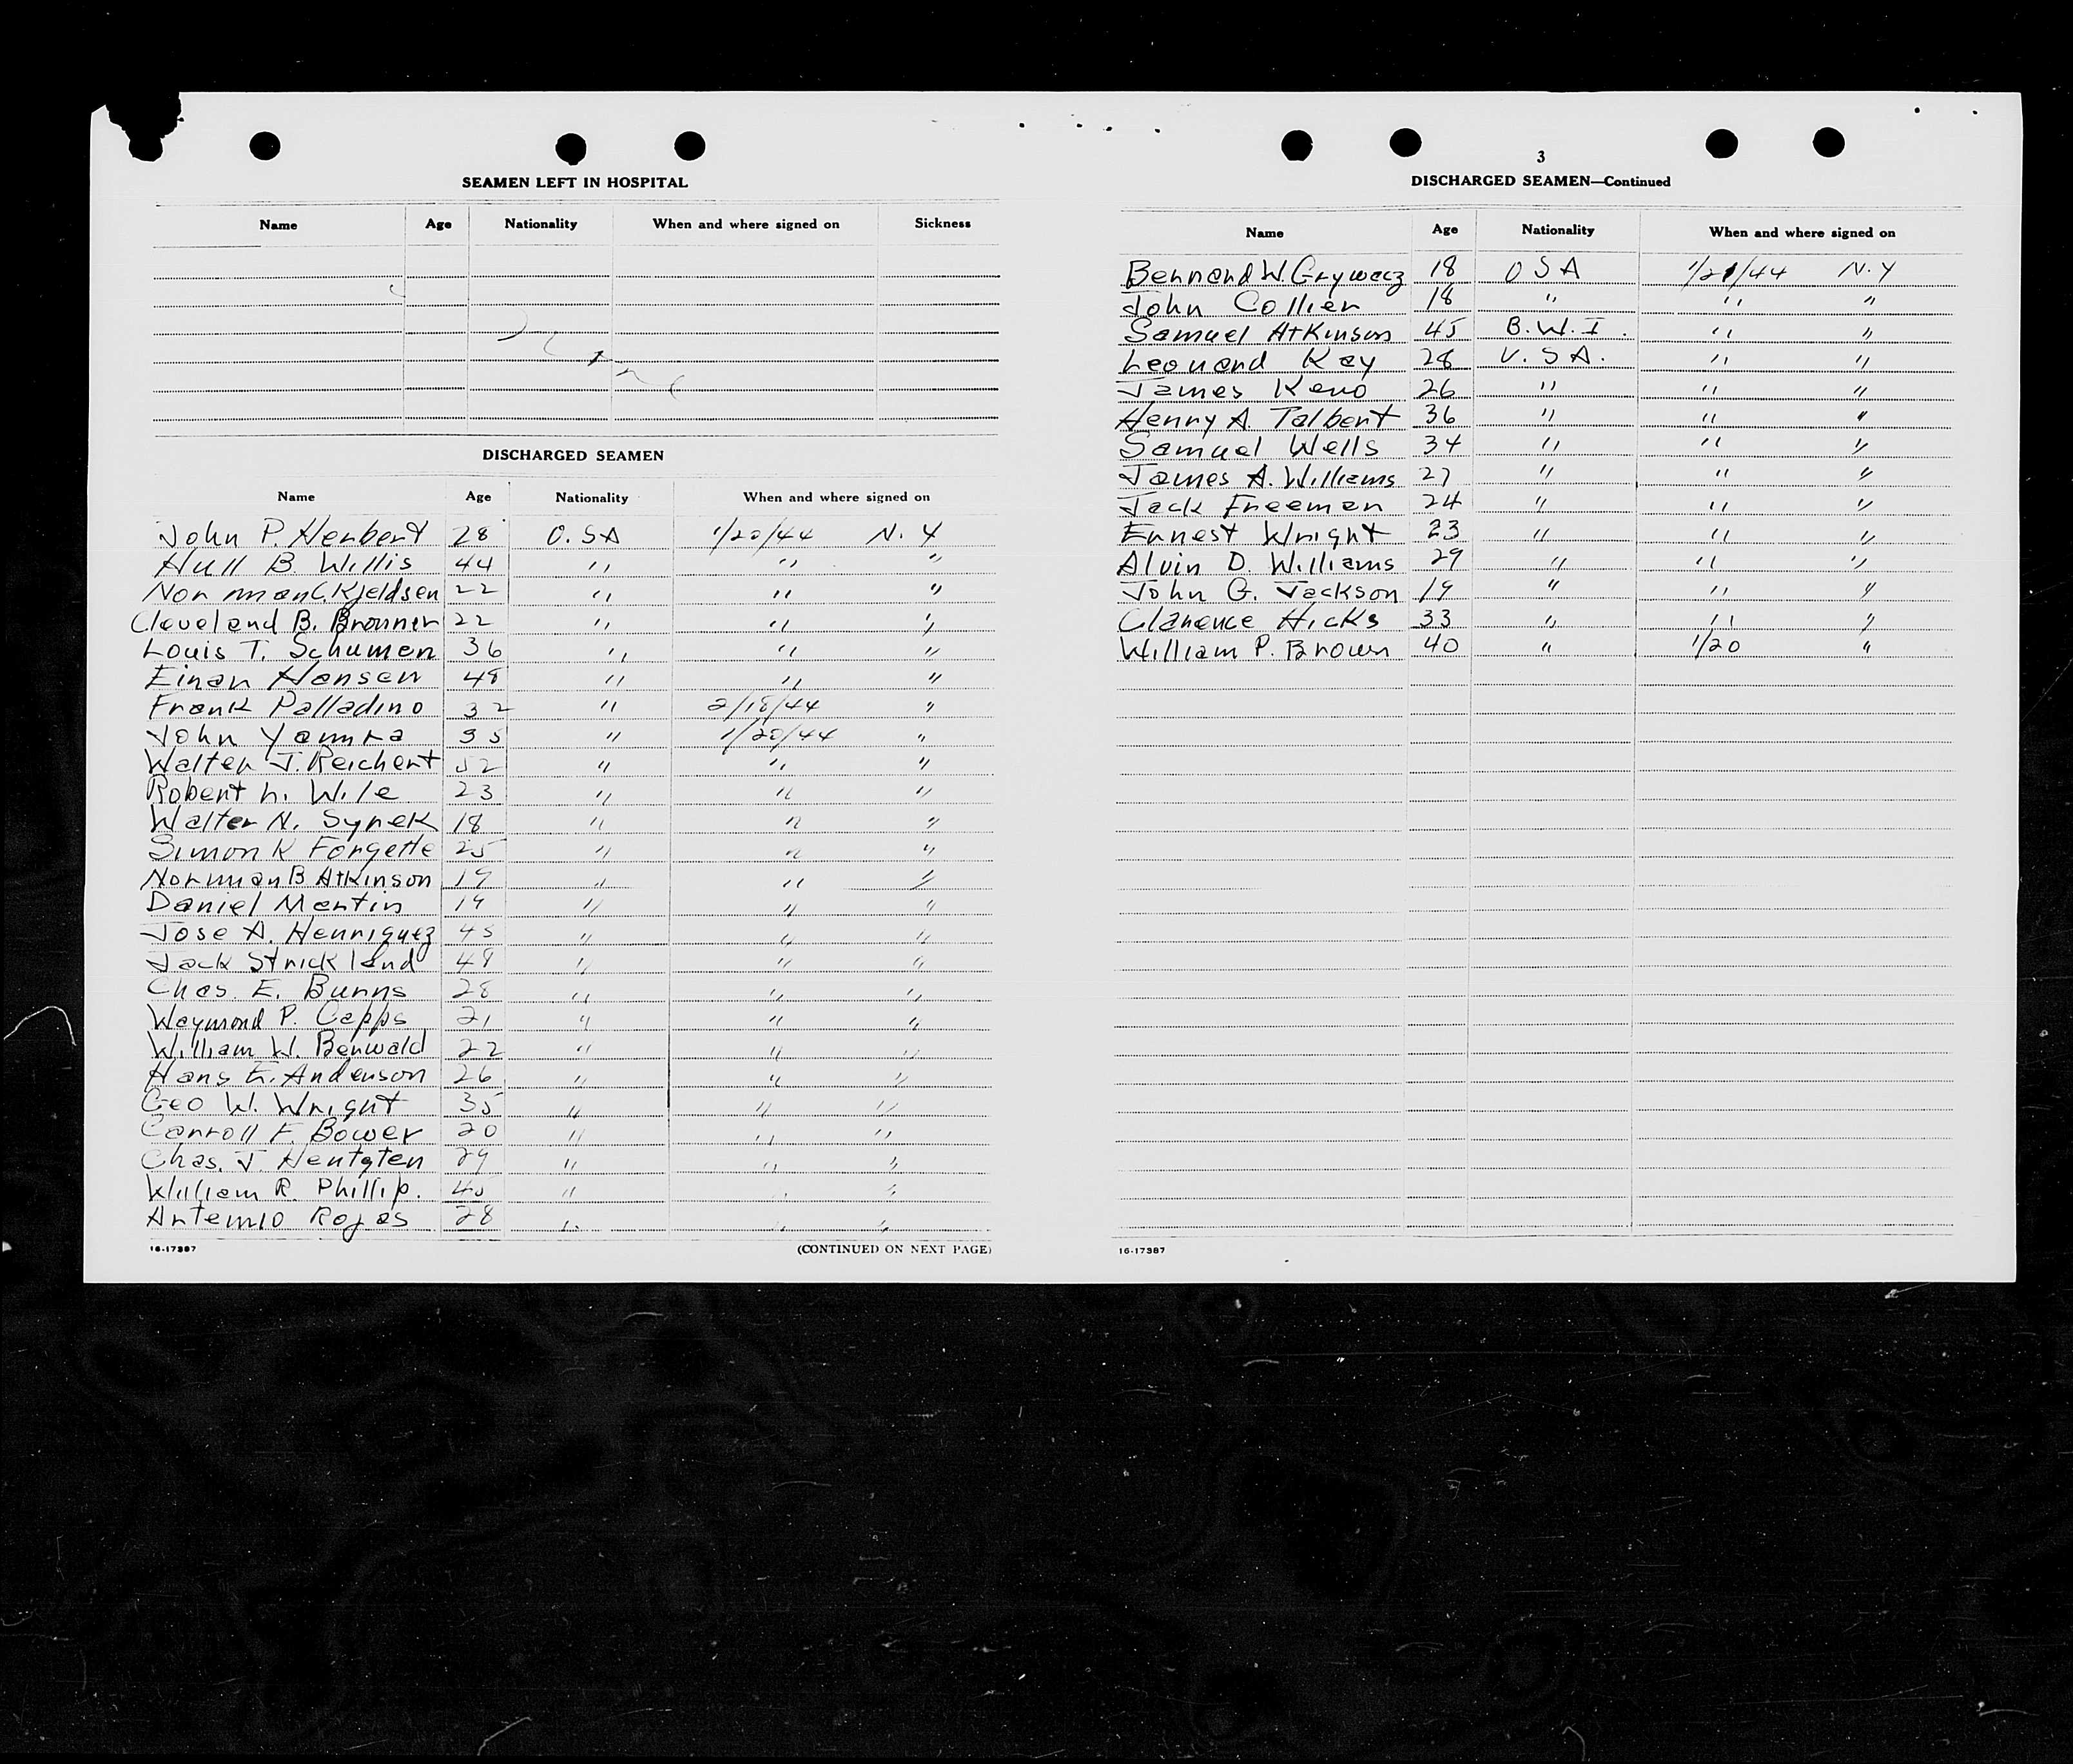 SEAMEN LEFT IN HOSPITAL
Name Age Nationality When and where signed on Sickness
DISCHARGED SEAMEN
Name Age Nationality When and where signed on
John P. Herbert 28 U.S.A 1/20/44 N.Y
Hull B. Willis 44 " " "
Norman C. Kjeldsen 22 " " "
Cleveland B. Bronner 22 " " "
Louis T. Schuman 36 " " "
Einar Hansen 48 " " "
Frank Palladino 32 " 2/18/44 "
John 35 " 1/20/44 "
Walter J. Reichert 52 " " "
Robert L. Wile 23 " " "
Walter N. Synek 18 " " "
Simon K Forgette 25 " " "
Norman B Atkinson 19 " " "
Daniel Martin 19 " " "
Jose A. Henriquez 45 " " "
Jack Strickland 48 " " "
Chas. E. Burns 28 " " "
Waymond P. Capps 21 " " "
William W. Berwald 22 " " "
Hans E. Anderson 26 " " "
Geo W. Wright 35 " " "
Carroll F. Bower 20 " " "
Chas. J. Hentgten 29 " " "
William R. Phillip. 45 " " "
Artemio Rojas 28 " " "
16-17387 (CONTINUED ON NEXT PAGE)
3
DISCHARGED SEAMEN—Continued
Name Age Nationality When and where signed on
Bernard W. Grywacz 18 USA 1/21/44 N.Y
John Collier 18 " " "
Samuel Atkinson 45 B.W.I. " "
Leonard Kay 28 U.S.A. " "
James Keno 26 " " "
Henry A. Talbert 36 " " "
Samuel Wells 34 " " "
James A. Williams 27 " " "
Jack Freeman 24 " " "
Ernest Wright 23 " " "
Alvin D. Williams 29 " " "
John G. Jackson 19 " " "
Clarence Hicks 33 " " "
William P. Brown 40 " 1/20 "
16-17387